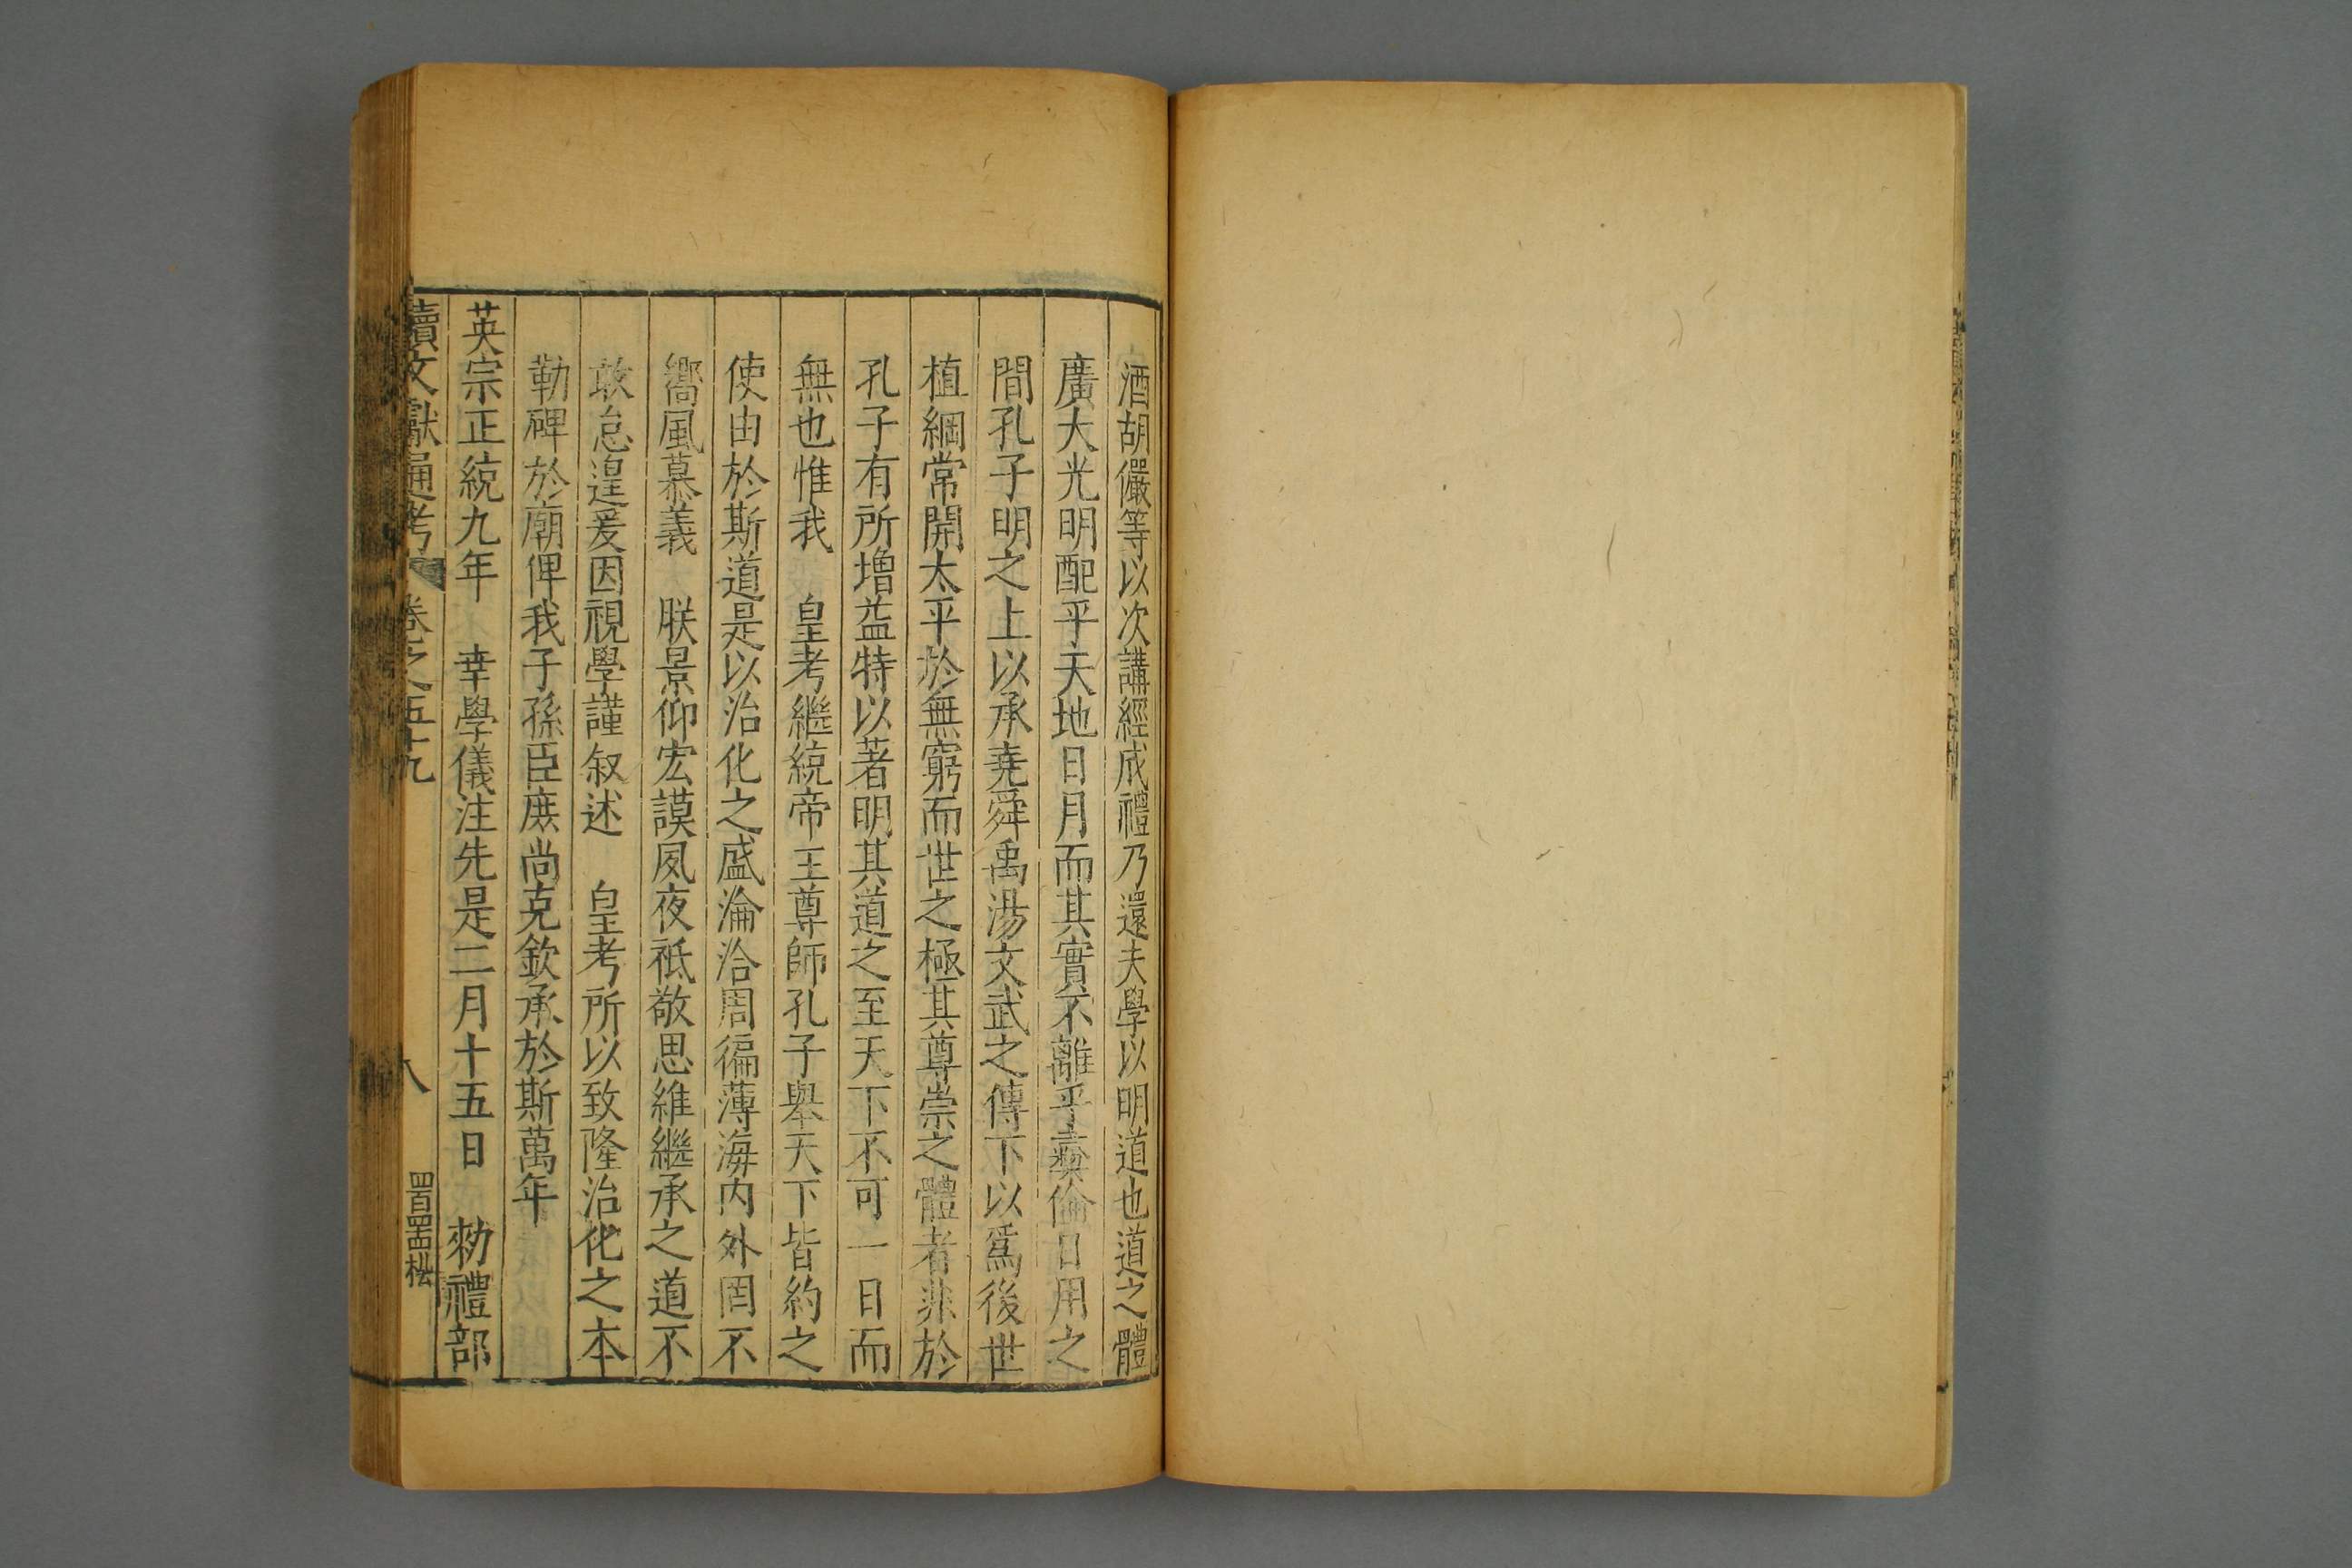 酒胡儼等以次講經成禮乃還夫學以明道也道之體
廣大光明配乎天地日月而其實不離乎彝倫日用之
間孔子明之上以承堯舜禹湯文武之傳下以爲後世
植綱常開太平於無窮而世之極其尊崇之體者非於
孔子有所增益特以著明其道之至天下不可一日而
無也惟我　皇考繼統帝王尊師孔子舉天下皆約之
使由於斯道是以治化之盛淪洽周徧薄海内外罔不
嚮風慕義　朕景仰宏謨夙夜祗敬思維繼承之道不
敢怠遑爰因視學謹叙述　皇考所以致隆治化之本
勒碑於廟俾我子孫臣庶尚克欽承於斯萬年
英宗正統九年　幸學儀注先是二月十五日　勑禮部
續文獻通考　卷之五十九　八